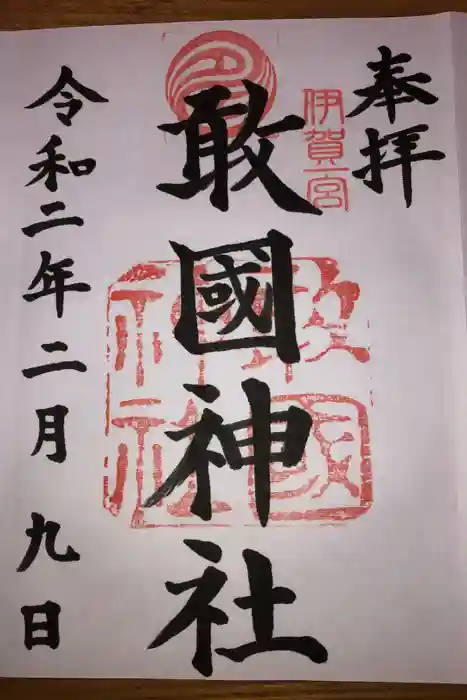 奉拝
伊賀一宮
敢國神社
敢國神社
令和二年二月九日